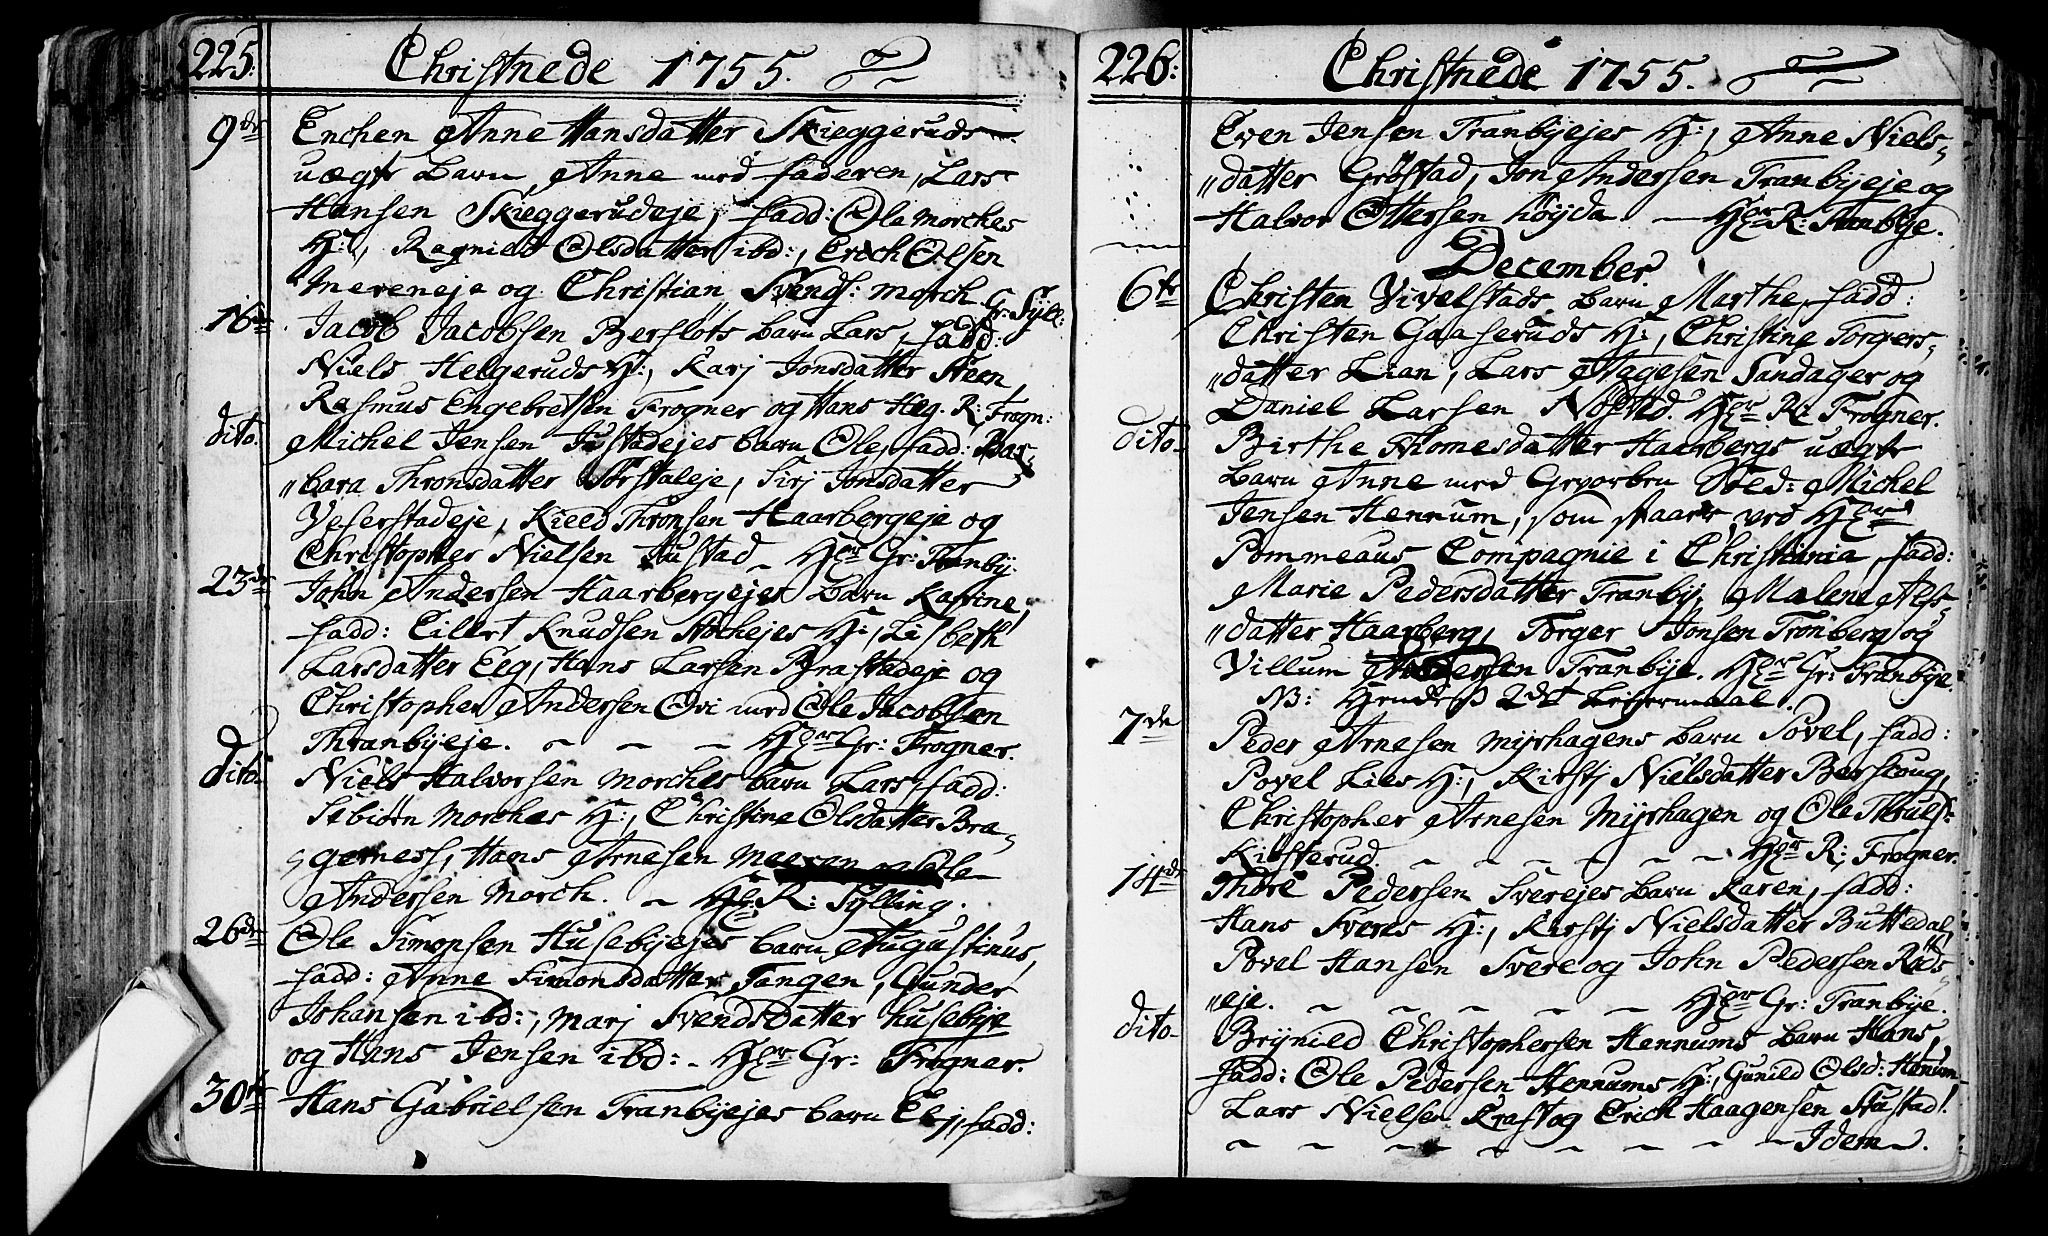 225.
Christnede 1755.
9de Enchen Anne Hansdatter Skieggeruds
uægte barn Anne med faderen, Lars
Hansen Skieggerudeje, fadd: Ola Morches
H:, Ragnild Olsdatter ibd:, Erich Olsen
Mereneje og Christian Svends: Morch G: Syll:
16de Jacob Jacobsen Berfløts barn Lars, fadd:
Niels Helgeruds H:, Karj Jonsdatter Steen,
Rasmus Engebretsen Frogner og Hans Heg. R: Frogn:
dito. Michel Jensen Justadejes barn Ole, fadd: Bar-
"bara Thronsdatter Sørstaleje, Sirj Jonsdatter
Veserstadeje, Kield Thronsen Haarbergeje og
Christopher Nielsen Justad Hr Gr: Tranby:
23de John Andersen Haarbergejes barn Katrine,
fadd: Eilert Knudsen Hochejes H:, Lisbeth
Larsdatter Eeg, Hans Larsen Brastadeje og
Christopher Andersen Ovi med Ole Jacobsen
Thranbyeje. ~ ~ ~ Hr Gr: Frogner.
dito. Niels Halvorsen Morches barn Lars, fadd:
Sebiørn Morches H:, Christine Olsdatter Bra-
gerness, Hans Arnesen Meeren og Ole
Andersen Morch. ~ Hr R: Sylling.
26de Ole Simonsen Husebyejes barn Augustinus,
fadd: Anne Simonsdatter Tangen, Gunder
Johansen ibd:, Marj Svendsdatter Husebye
og Hans Jensen ibd: - Hr Gr: Frogner.
30te Hans Gabrielsen Tranbyejes barn Eej, fadd:
226:
Christnede 1755.
Even Jensen Tranbyejes H:, Anne Niels-
"datter Grøstad, Jon Andersen Tranbyeje og
Halvor Ottersen Høyda. ~ Hr R: Tranbye.
December.
6te Christen Vivelstads barn Marthe, fadd:
Christen Gaaseruds H:, Christine Torgers-
"datter Lian, Lars Aagesen Sandager og
Daniel Larsen Nøsted. Hr R: Frogner.
dito. Birthe Thomesdatter Haarbergs uægte
barn Anne med Gevorben Sold: Michel
Jensen Hennum, som staar ved Hr
Pommeaus Compagnie i Christiania, fadd:
Marie Pedersdatter Tranby, Malene Alfs-
"datter Haarberg, Torger Jonsen Tronberg og
Villum Andersen Tranbye. Hr Gr: Tranbye.
NB: Hendes 2det Leyermaal.
7de Peder Arnesen Myrhagens barn Povel, fadd:
Povel Lies H:, Kirstj Nielsdatter Berschoug,
Christopher Arnesen Myrhagen og Ole Thruls:
Kiøsterud. ~ ~ ~ ~ ~ Hr R: Frogner.
14de Thore Pedersen Sverejes barn Karen, fadd:
Hans Sveres H:, Kirstj Nielsdatter Buttedal,
Povel Hansen Svere og John Pedersen Røds-
"eje. ~ ~ ~ ~ ~ Hr Gr: Tranbye.
dito. Brynild Christophersen Hennums barn Hans,
fadd: Ole Pedersen Hennums H:, Gunild Olsd: Henum
Lars Nielsen Kraft og Erich Haagensen Justad.
~ ~ ~ ~ ~ ~ ~ ~ Idem.